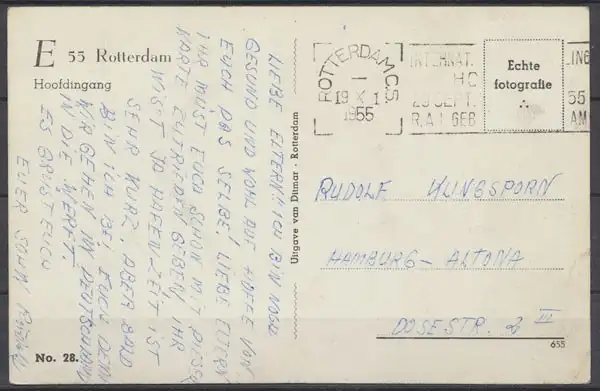 E 55 Rotterdam
Hoofdingang
LIEBE ELTERN! ICH BIN NOCH
GESUND UND WOHL AUF HOFFE VON
EUCH DAS SELBE! LIEBE ELTERN
IHR MÜST EUCH SCHON MIT DIESER
KARTE ZUFRIEDEN GEBEN, IHR
WIST JA HAFEN-ZEIT IST
SEHR KURZ, ABER BALD
BIN ICH BEI EUCH DENN
WIR GEHEN IN DEUTSCHLAND
IN DIE WERFT.
ES GRÜST EUCH
EUER SOHN
No. 28.
Uitgave van Ditmar - Rotterdam
ROTTERDAM C.S
I
19 X 1
1955
INTERNAT.
HC
LING
29 SEPT.
55
R.A.I. GEB
AM
Echte
fotografie
RUDOLF KLINGSPORN
HAMBURG - ALTONA
DOSESTR. 2 III
655